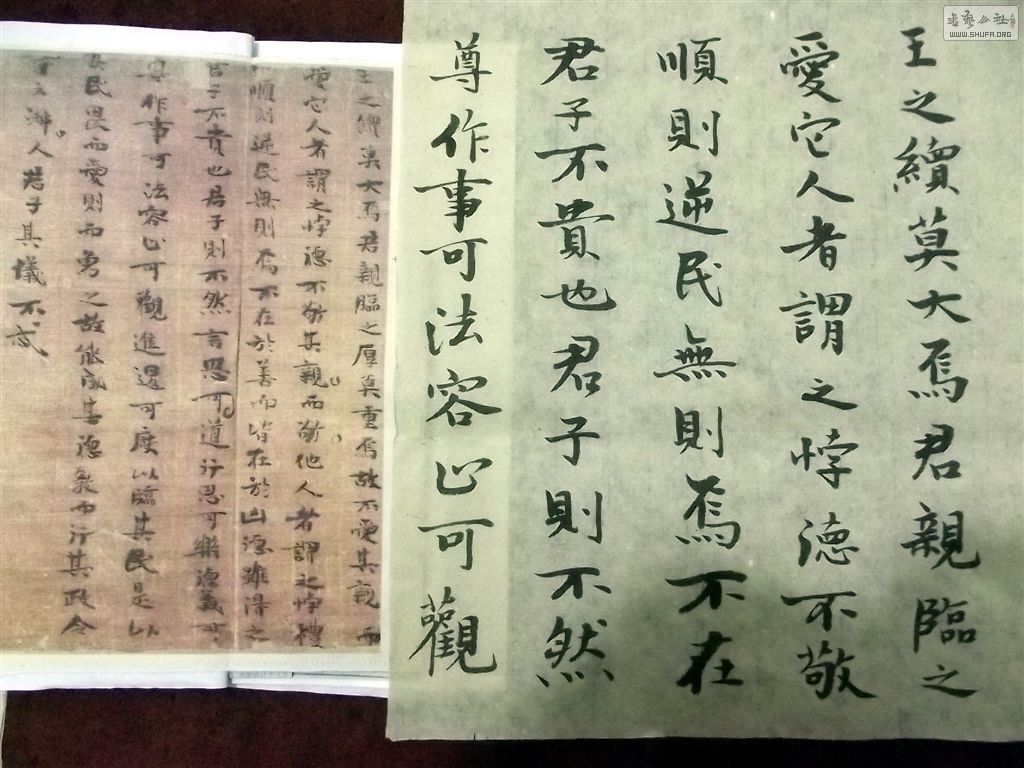 書藝公社
WWW.SHUFA.ORG
王之續莫大焉君親臨之
愛它人者謂之悖德不敬
順則逆民無則焉不在
君子不貴也君子則不然
尊作事可法容止可觀
王之續莫大焉君親臨之厚莫重焉故不愛其親而
愛它人者謂之悖德不敬其親而敬他人者謂之悖禮
順則逆民無則焉不在於善而皆在於凶德雖得之
君子不貴也君子則不然言思可道行思可樂德義可
尊作事可法容止可觀進退可度以臨其民是以
其民畏而愛則而象之故能成其德教而行其政令
淑人君子其儀不忒